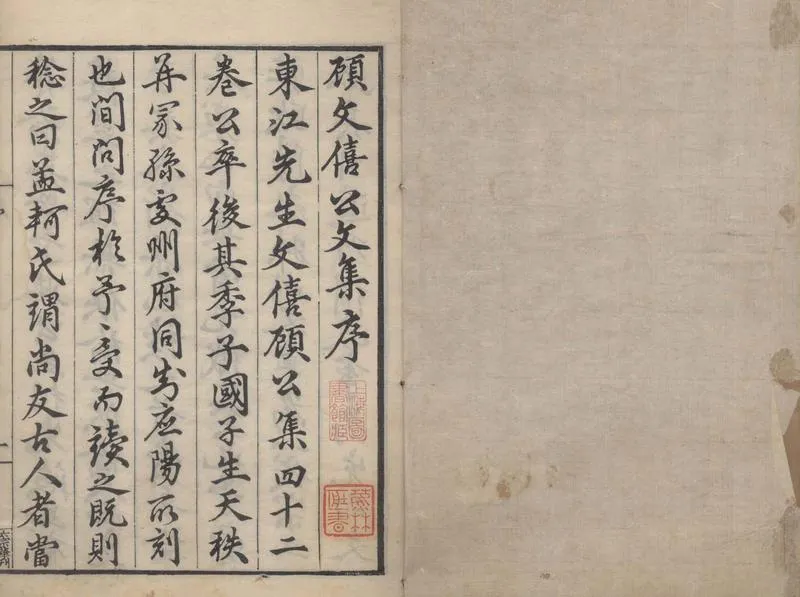 顧文僖公文集序
東江先生文僖顧公集四十二
卷公卒後其季子國子生天秩
并冢孫處州府同知應陽所刻
也間問序於予〻受而讀之既則
稔之曰孟軻氏謂尚友古人者當
上海圖書館藏